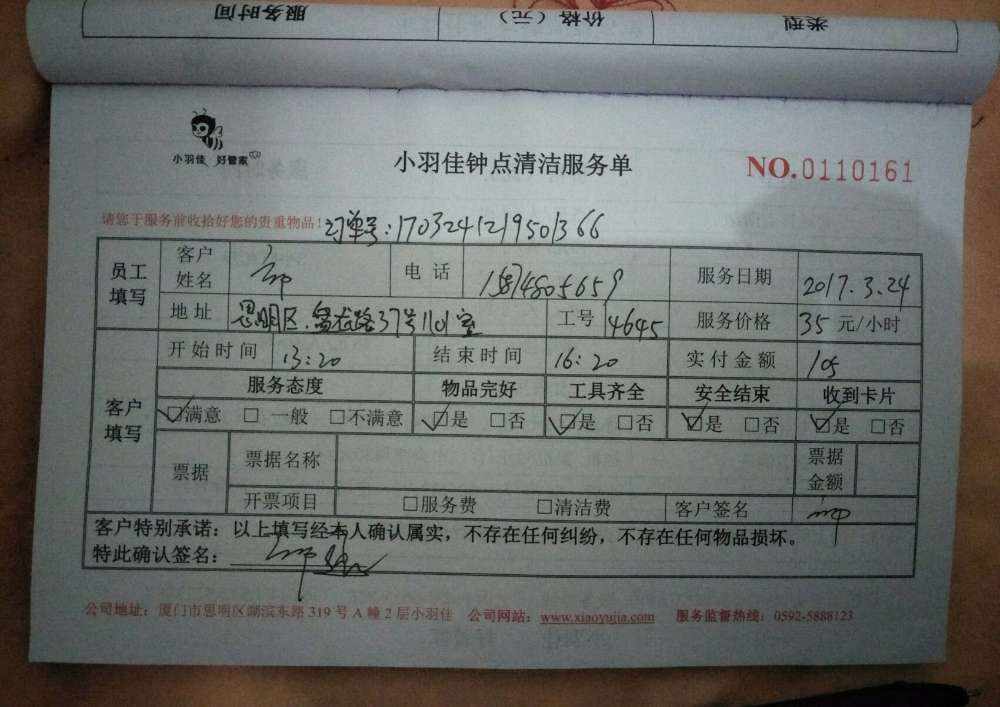 服务时间 价格（元） 类型
小羽佳 好管家
小羽佳钟点清洁服务单
NO.0110161
请您于服务前收拾好您的贵重物品！订单号:1703241219501366
员工填写 客户姓名 电话 服务日期 2017.3.24
地址 思明区 路37号1101室 工号 4645 服务价格 35 元/小时
客户填写 开始时间 13:20 结束时间 16:20 实付金额 105
服务态度 物品完好 工具齐全 安全结束 收到卡片
☑满意 □一般 □不满意 ☑是 □否 ☑是 □否 ☑是 □否 ☑是 □否
票据 票据名称 票据金额
开票项目 □服务费 □清洁费 客户签名
客户特别承诺：以上填写经本人确认属实，不存在任何纠纷，不存在任何物品损坏。
特此确认签名：
公司地址：厦门市思明区湖滨东路 319 号 A 幢 2 层小羽佳 公司网站：www.xiaoyujia.com 服务监督热线：0592-5888123